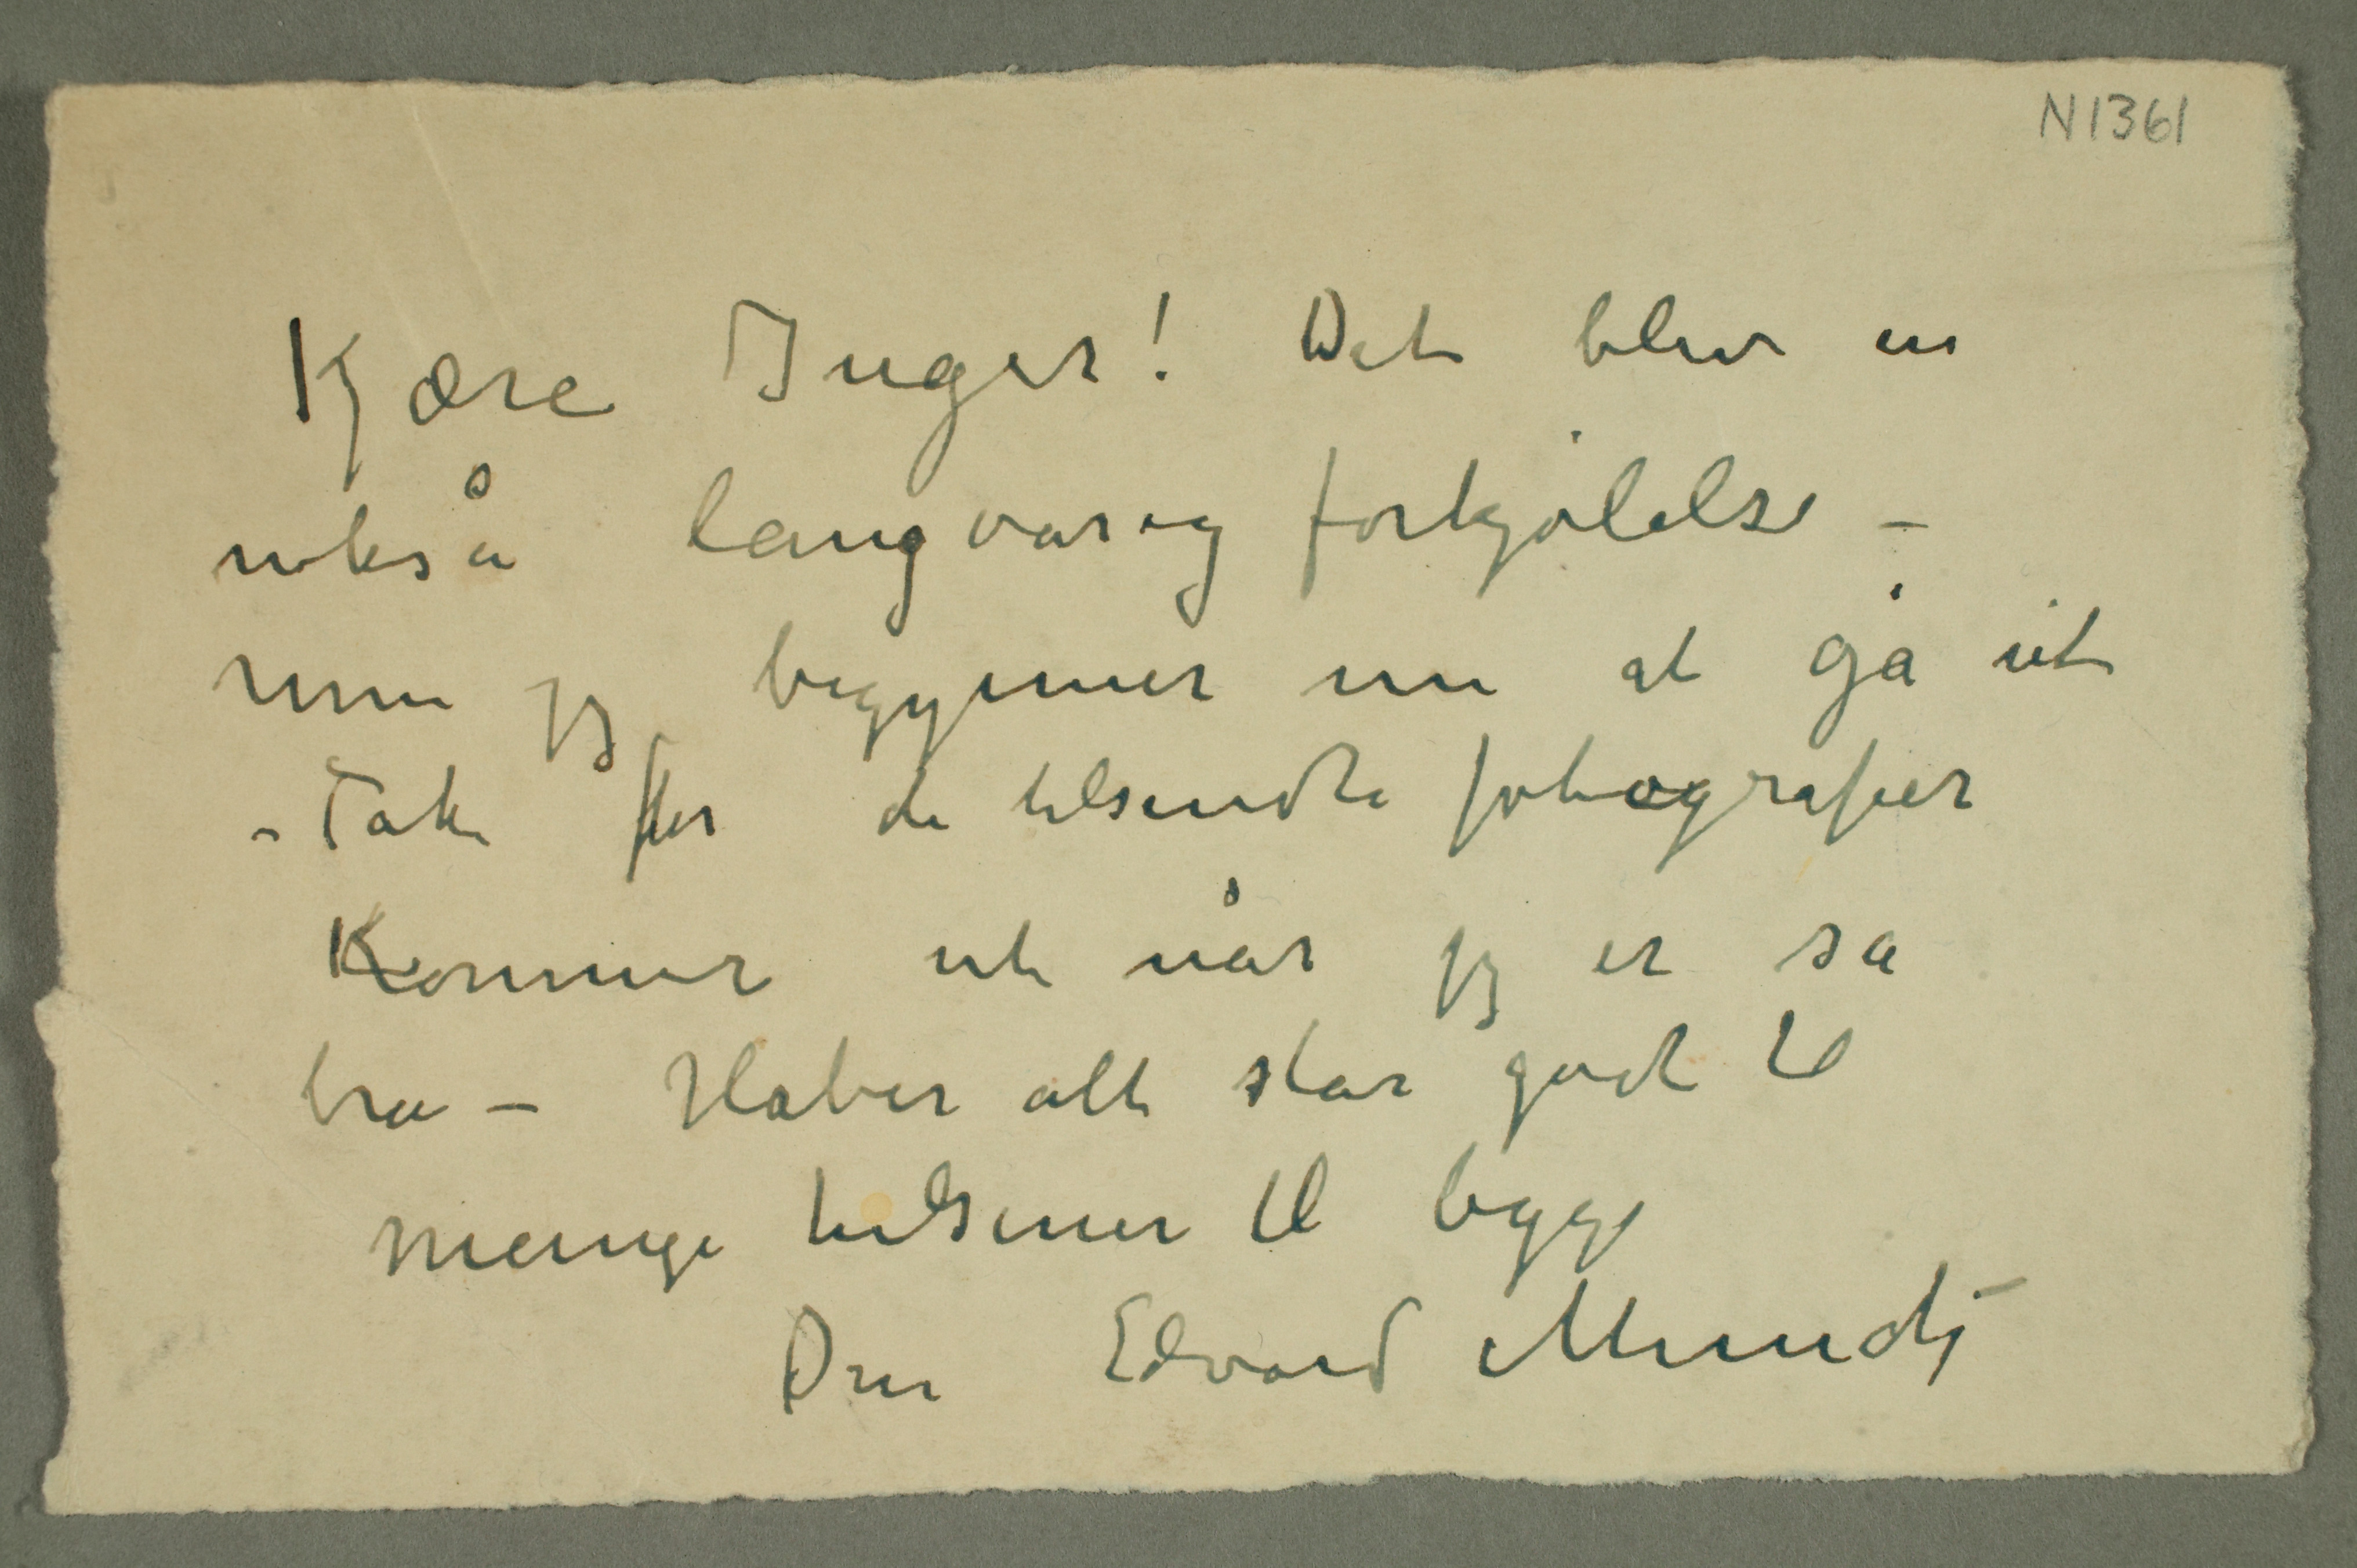 N1361
Kjære Inger! Det blev en
nokså langvarig forkjølelse –
men jeg begynner nu at gå ut
– Tak for de tilsendte fotografier
Kommer ut når jeg er så
bra – Håber alt står godt til
Mange hilsener til begge
Din Edvard Munch